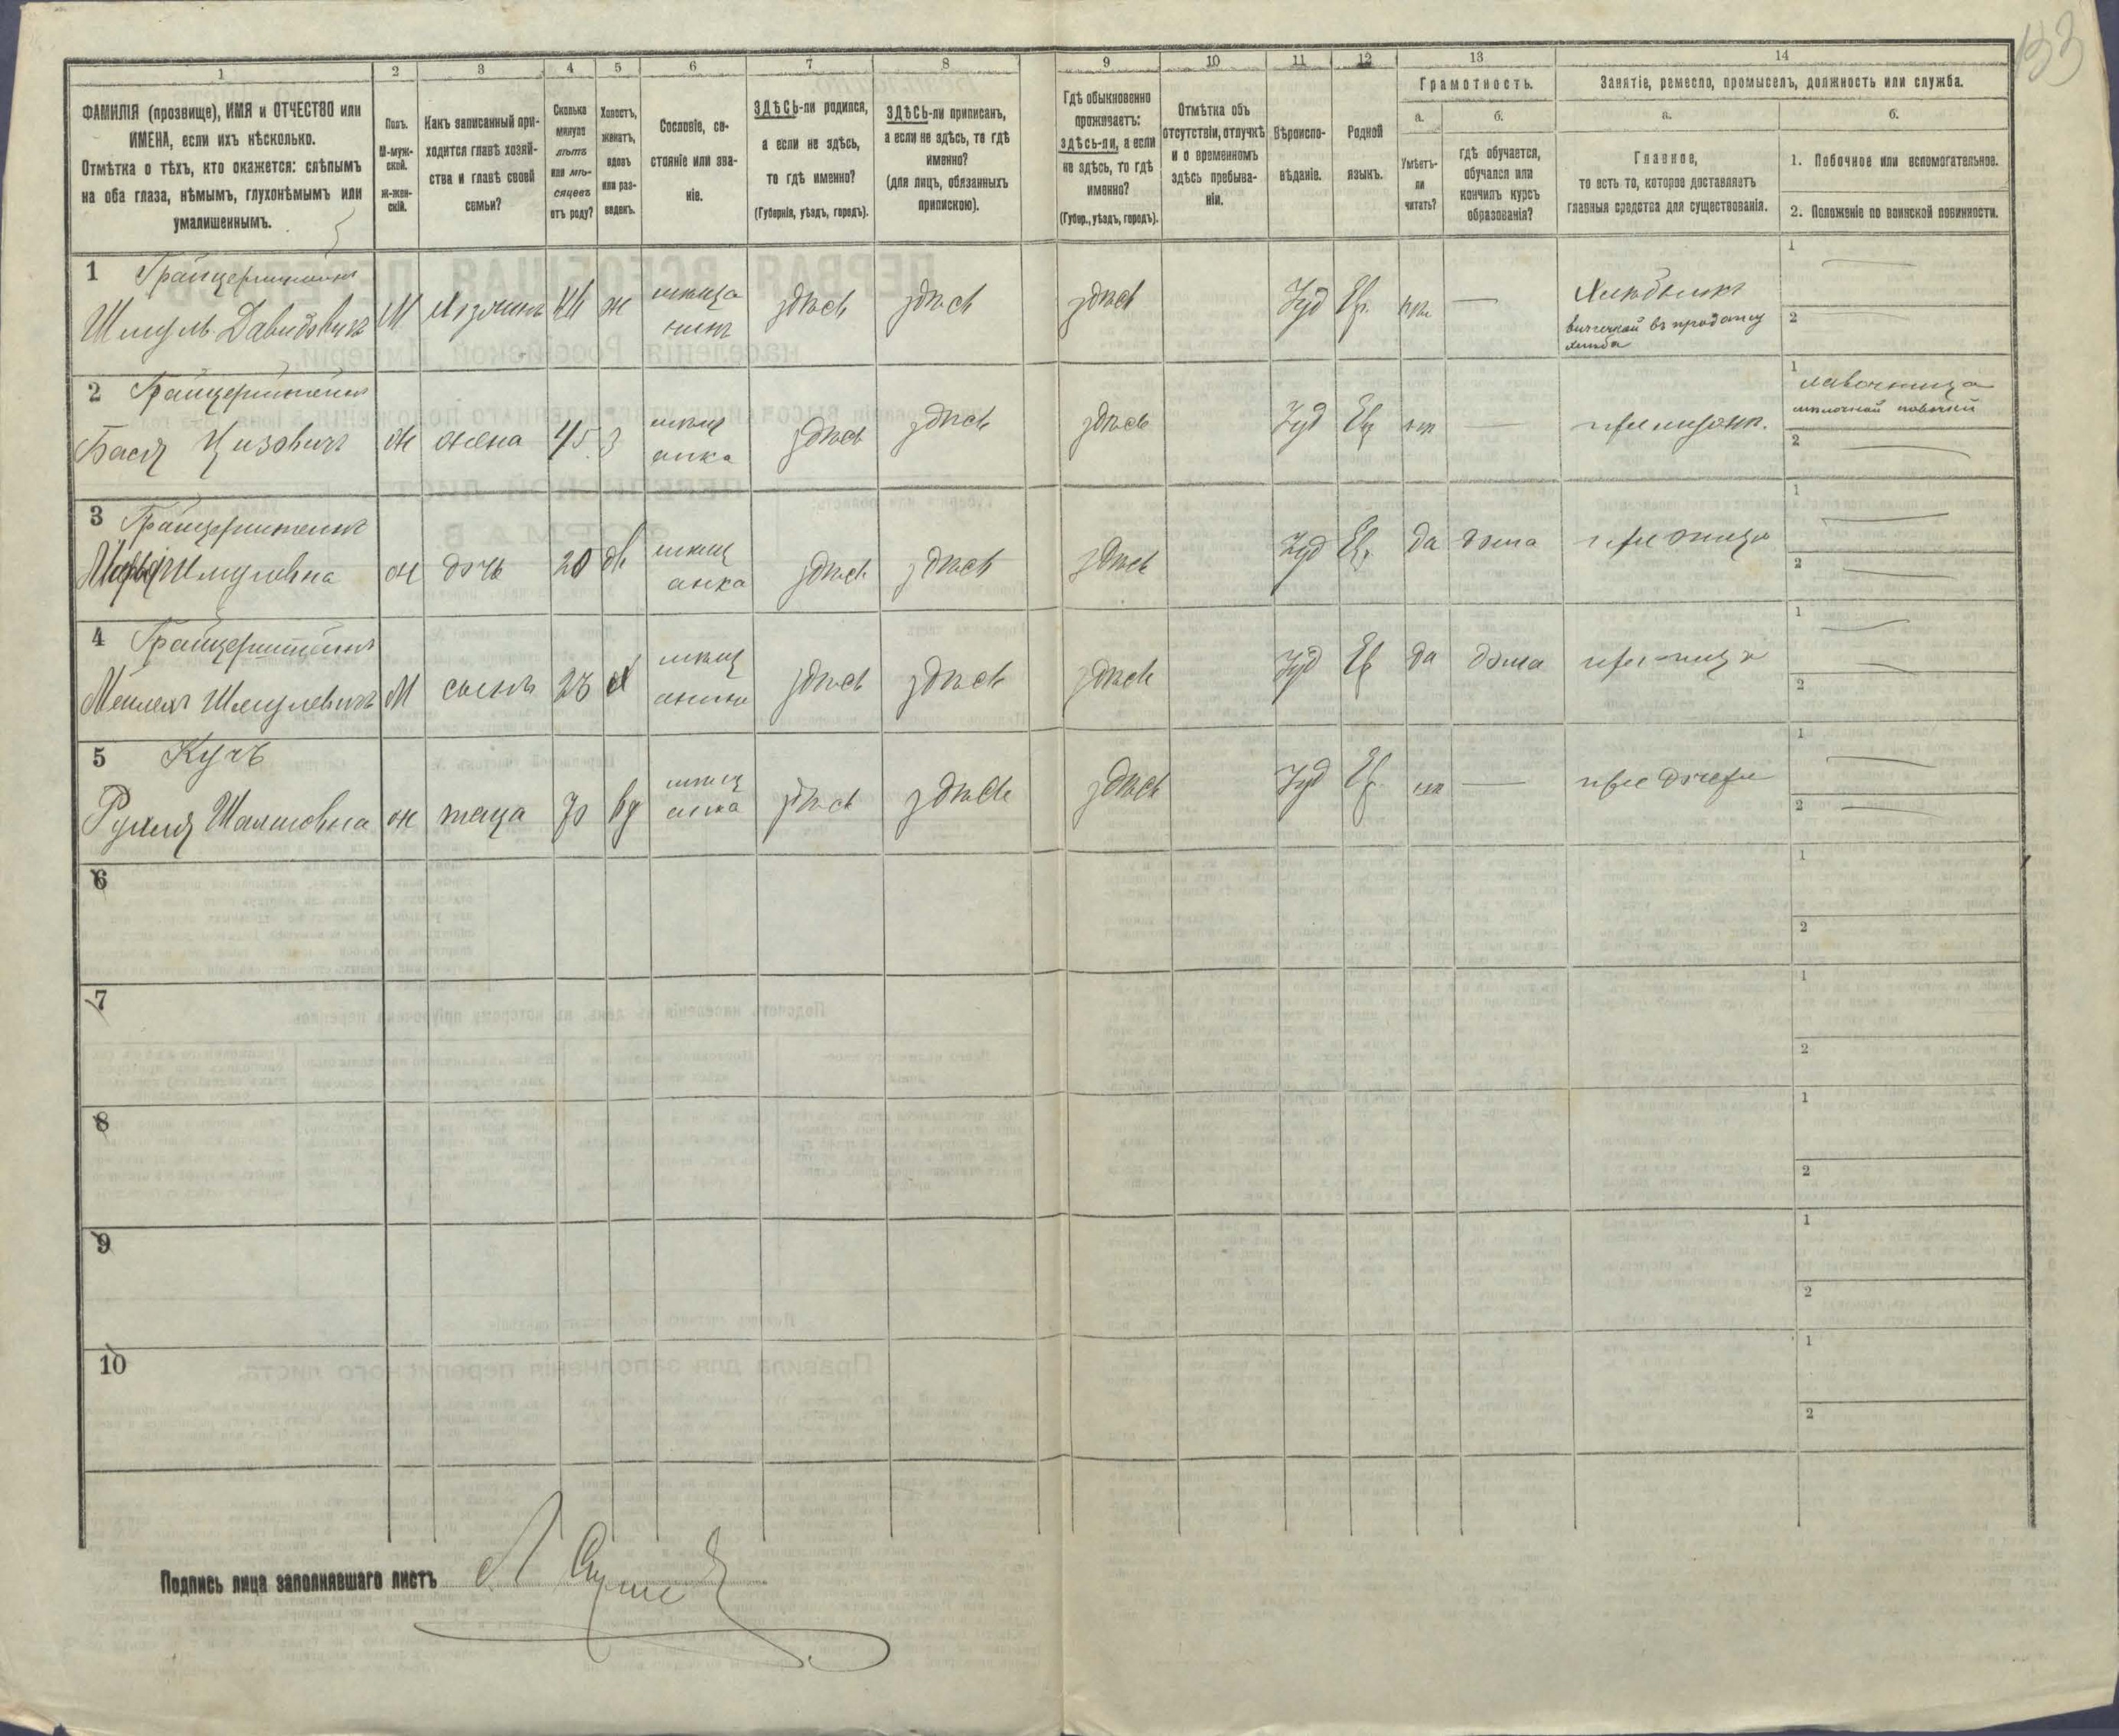 153
1
2
3
4
5
6
7
8
9
10
11
12
13
14
ФАМИЛІЯ (прозвище), ИМЯ и ОТЧЕСТВО или
ИМЕНА, если ихъ нѣсколько.
Отмѣтка о тѣхъ, кто окажется: слѣпымъ
на оба глаза, нѣмымъ, глухонѣмымъ или
умалишеннымъ.
Полъ.
М-муж-
ской.
Ж-жен-
скій.
Какъ записанный при-
ходится главѣ хозяй-
ства и главѣ своей
семьи?
Сколько
минуло
лѣтъ
или мѣ-
сяцевъ
отъ роду?
Холостъ,
женатъ,
вдовъ
или раз-
веденъ.
Сословіе, со-
стояніе или зва-
ніе.
ЗДѢСЬ-ли родился,
а если не здѣсь,
то гдѣ именно?
(Губернія, уѣздъ, городъ).
ЗДѢСЬ-ли приписанъ,
а если не здѣсь, то гдѣ
именно?
(для лицъ, обязанныхъ
припискою).
Гдѣ обыкновенно
проживаетъ:
здѣсь-ли, а если
не здѣсь, то гдѣ
именно?
(Губер., уѣздъ, городъ).
Отмѣтка объ
отсутствіи, отлучкѣ
и о временномъ
здѣсь пребыва-
ніи.
Вѣроиспо-
вѣданіе.
Родной
языкъ.
Грамотность.
а.
Умѣетъ-
ли
читать?
б.
гдѣ обучается,
обучался или
кончилъ курсъ
образованія?
Занятіе, ремесло, промыселъ, должность или служба.
а.
Главное,
то есть то, которое доставляетъ
главныя средства для существованія.
б.
1. Побочное или вспомогательное.
2. Положеніе по воинской повинности.
1
Шмуль Давидовичъ
М
хозяинъ
ж
мѣща
нинъ
здѣсь
здѣсь
здѣсь
Іуд
Евр.
—
Хлѣбникъ
хлѣба
1
2
2
Бася
ж
жена
45
з
мѣщ
анка
здѣсь
здѣсь
здѣсь
Іуд
Евр
—
1
лавочница
2
3
Шмулевна
ж
дочь
20
дв
мѣщ
анка
здѣсь
здѣсь
здѣсь
Іуд
Евр.
да
дома
при отцѣ
1
2
4
Шмулевичъ
М
сынъ
23
х
мѣщ
анинъ
здѣсь
здѣсь
здѣсь
Іуд
Евр
да
дома
при отцѣ
1
2
5
ж
теща
70
вд
мѣщ
анка
здѣсь
здѣсь
здѣсь
Іуд
Евр
—
при дочери
1
2
6
1
2
7
1
2
8
1
2
9
1
2
10
1
2
Подпись лица заполнявшаго листъ